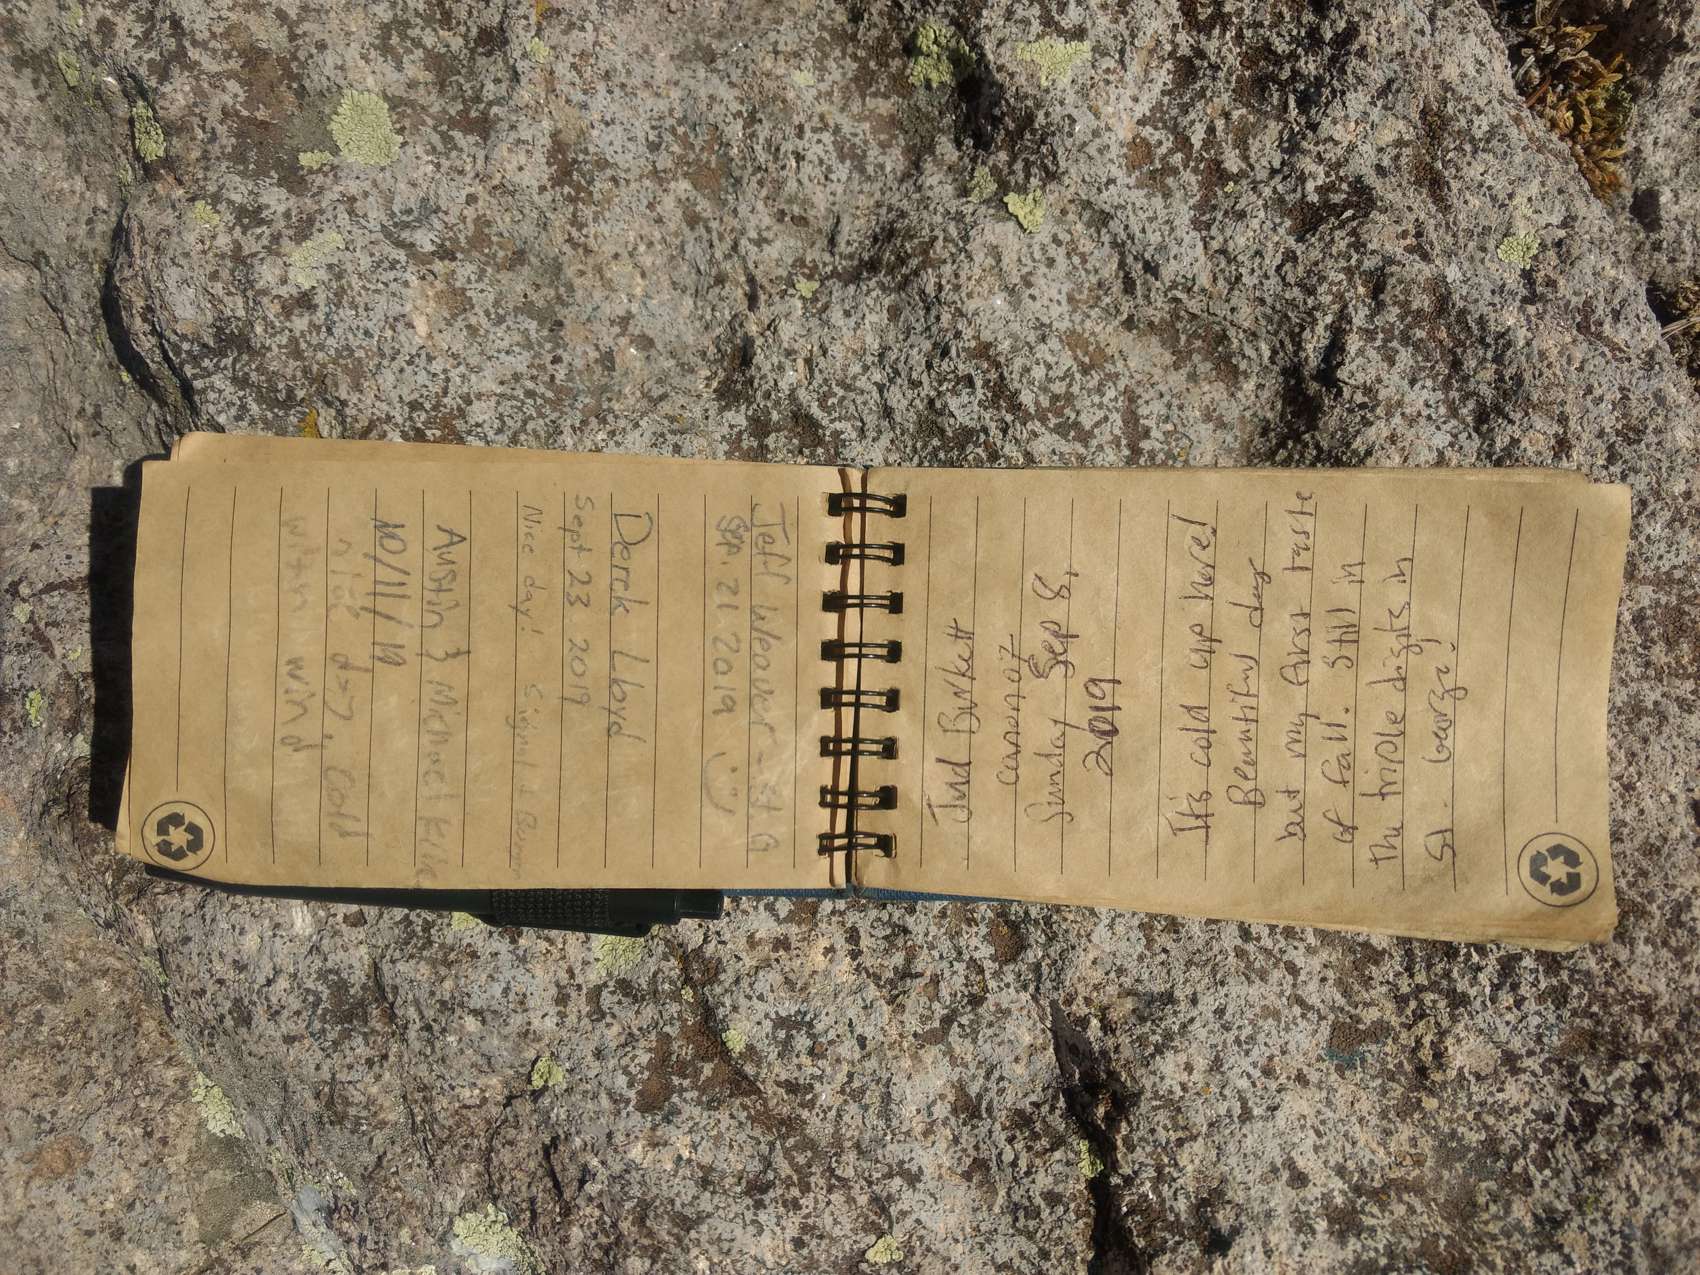 Jud Burkett
cannot
Sunday Sep 8,
2019
It's cold up here!
Beautiful day
but my first taste
of fall. Still in
the triple digits in
St. George!
Jeff Weaver - St. G
Sep. 21 2019
Derek Lloyd
Sept 23 2019
Nice day! Signal +
Austin & Michael
10/11/19
nice day, cold
with wind